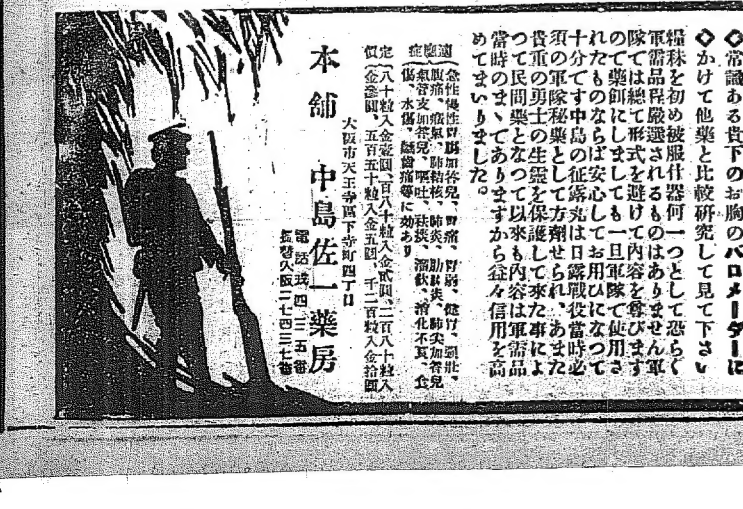 ◇常識ある貴下のお胸のバロメーターに
◇かけて他藥と比較研究して見て下さい
糧秣を初め被服什器何一つとして恐らく
軍需品程嚴選されるものはありません軍
隊では總て形式を避けて内容を尊びます
ので藥餌にしましても一旦軍隊で使用さ
れたものならば安心してお用ひになつて
十分です中島の征露丸は日露戰役當時必
須の軍隊秘藥として方劑せられ、あまた
貴重の勇士の生靈を保護して來た事によ
つて民間藥となつて以來も内容は軍需品
當時のまゝでありますから益々信用を高
めてまいりました。
適應症
急性慢性胃腸加答兒、胃痛、胃弱、健胃、
腹痛、疝氣、肺結核、肺炎、肋膜炎、肺尖加答兒
氣管支加答兒、嘔吐、祛痰、溜飲、消化不良、食
傷、水傷、齲齒痛等に効あり
定價
八十粒入金壹圓、百八十粒入金貳圓、二百八十粒入
金參圓、五百五十粒入金五圓、千二百粒入金拾圓
大阪市天王寺區下寺町四丁目
本舖 中島佐一藥房
電話戎四二三五番
振替大阪二七四三七番